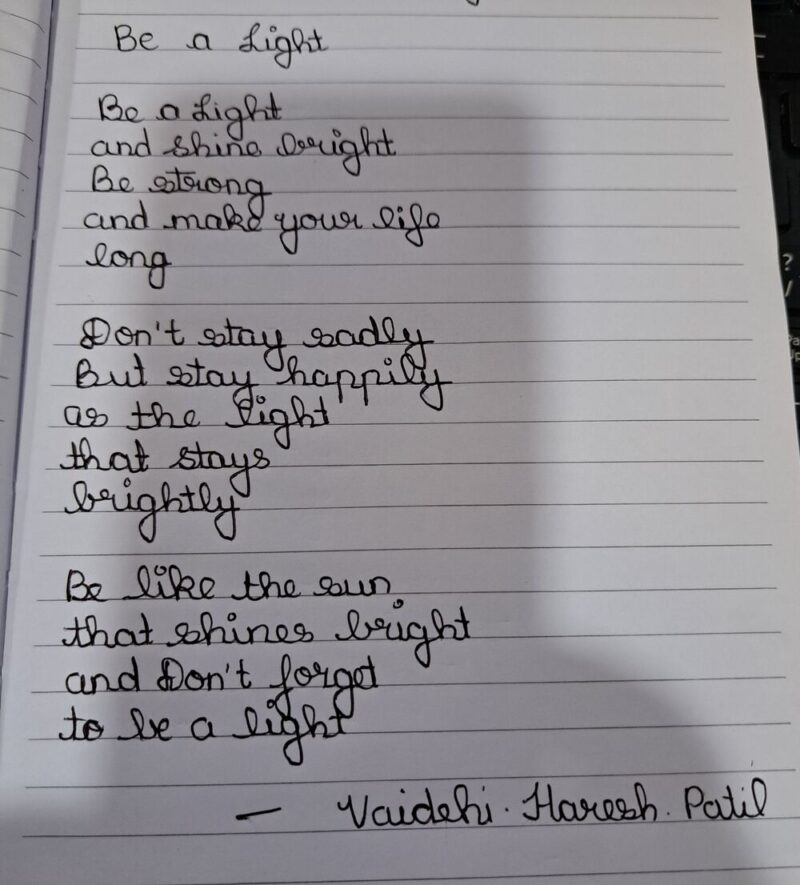 Be a Light
Be a Light
and shine bright
Be strong
and make your life
long
Don't stay sadly
But stay happily
as the light
that stays
brightly
Be like the sun
that shines bright
and Don't forget
to be a light
— Vaidehi. Haresh. Patil